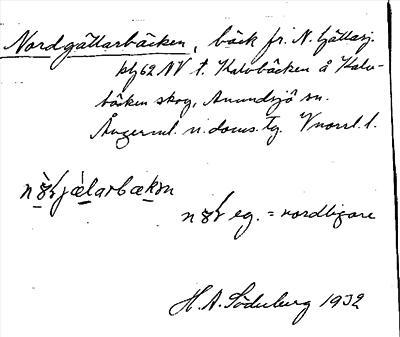 Nordgällarbäcken, bäck fr. N. Gällasj.
kbl 62 NV t. Kalvbäcken å Kalv-
bäcken skog, Anundsjö sn.
Ångerml. n. doms. tg. Vnorrl. l.
eg. = nordligare
H. A. Söderberg 1932